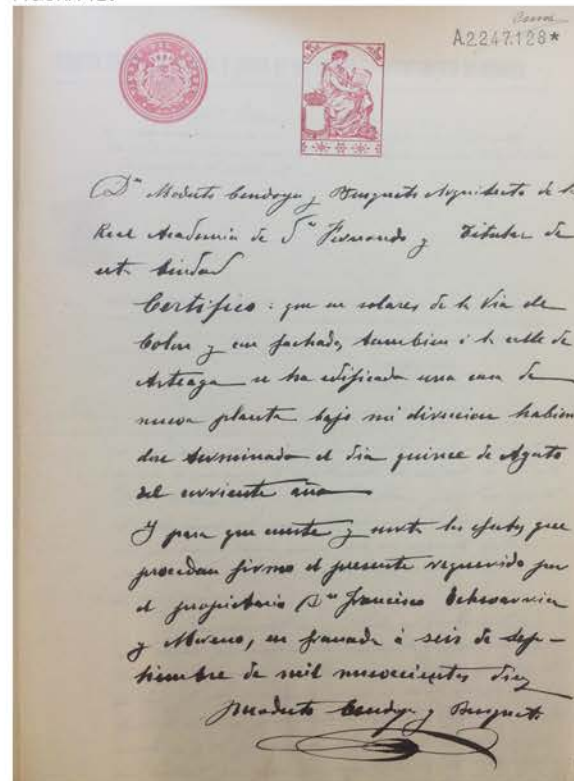 A2247.128*
Dⁿ Modesto Cendoya y Busquets Arquitecto de la
Real Academia de Sⁿ Fernando y Titular de
esta Ciudad
Certifico: que en solares de la Via de
Colon y con fachada tambien á la calle de
Arteaga se ha edificado una casa de
nueva planta bajo mi direccion habien
dose terminado el dia quince de Agosto
del corriente año
Y para que conste y surta los efectos que
procedan firmo el presente requerido por
el propietario Dⁿ Francisco Echevarria
y Moreno, en Granada á seis de Sep-
tiembre de mil novecientos diez
Modesto Cendoya y Busquets